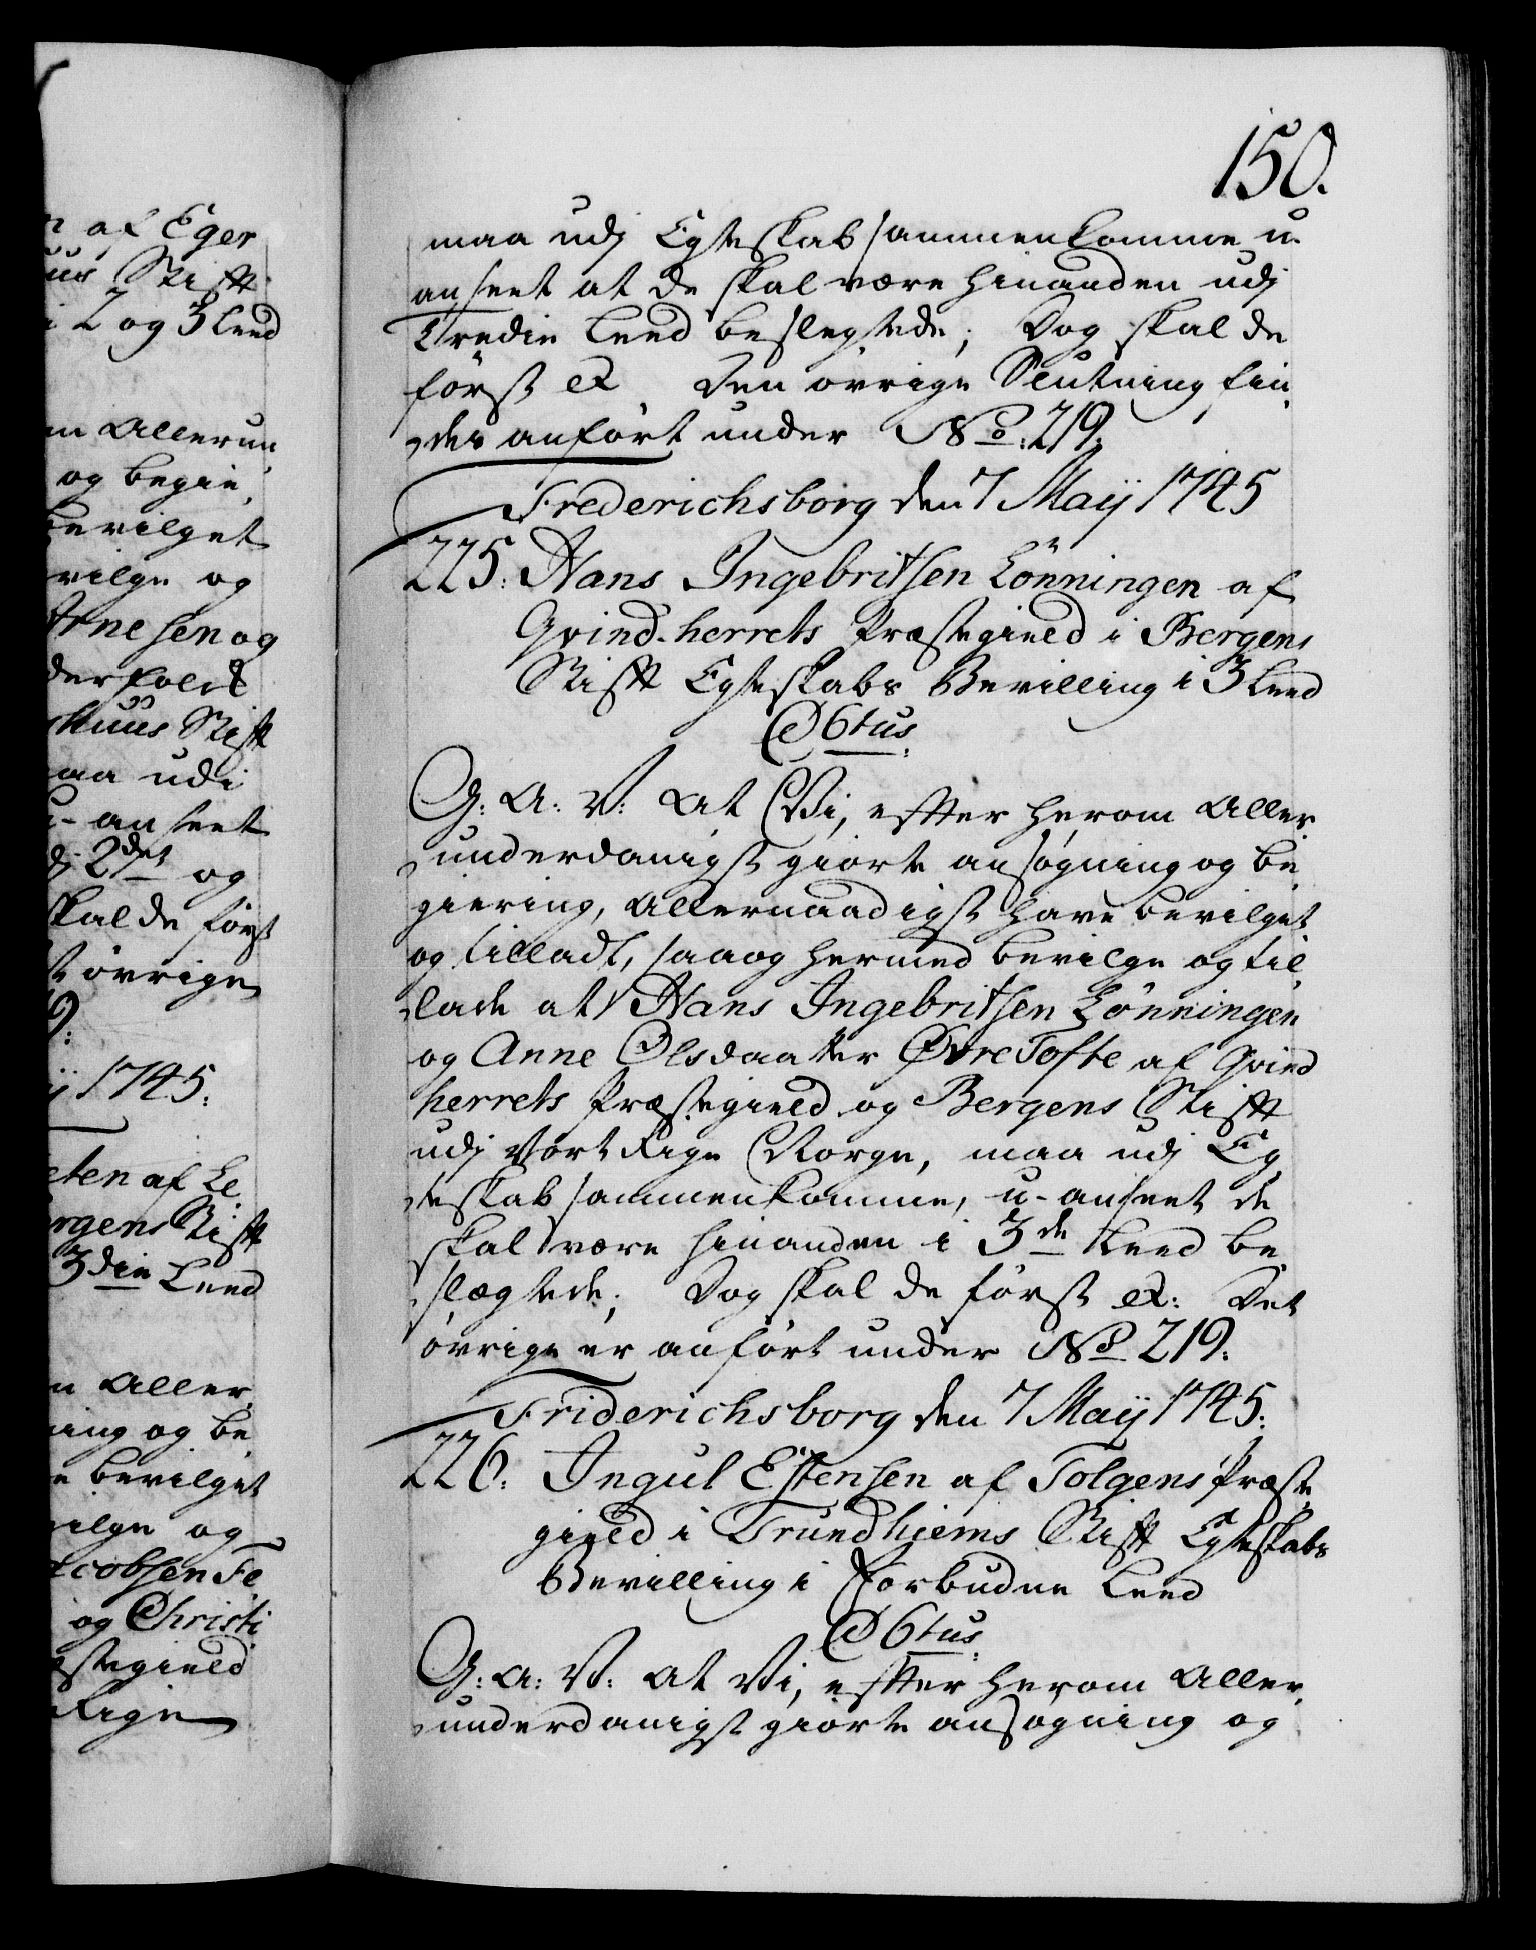 150.
maa udj Egteskab sammenkomme u-
anseet at de skal være hinanden udj
Tredie Leed beslegtede; Dog skal de
først etc. Den øvrige Slutning fin,
des anført under No: 219.
Frederichsborg den 7 Maij 1745
225: Hans Ingebritsen Lönningen af
Qvind-herrets Præstegield i Bergens
Stifft Egteskabs Bevilling i 3 Leed
C D 6tus
G: A: V: At Vi, efter herom Aller,
underdanigst giorte ansøgning og be,
giering, Allernaadigst have bevilget
og tilladt, saa og hermed bevilge og til,
lade at Hans Ingebritsen Lönningen
og Anne Olsdaatter Øvre Tofte af Qvind
herrets Præstegield og Bergens Stifft
udj Vort Rige Norge, maa udj Eg,
teskab sammenkomme, u-anseet de
skal være hinanden i 3de Leed be,
slægtede; Dog skal de først etc: Det
øvrige er anført under No 219.
Friderichsborg den 7 Maij 1745.
226: Ingul Estensen af Tolgens Præste,
gield i Trundhiems Stift Egteskabs
Bevilling i Forbudne Leed
C D 6tus
G: A: V: At Vi, efter herom Aller,
underdanigst giorte ansøgning og
n af Eger
uus Stifft
i 2 og 3 Leed
Allerun,
og begie,
bevilget
vilge og
Arnesen og
huus Stift
maa udi
u-anseet
dj 2det og
skal de først
øvrige
9:
ij 1745.
eten af Le,
rgens Stift
3die Leed
n Aller,
ning og be,
e bevilget
vilge og
acobsen Fe
og Christi
æstegield
Rige